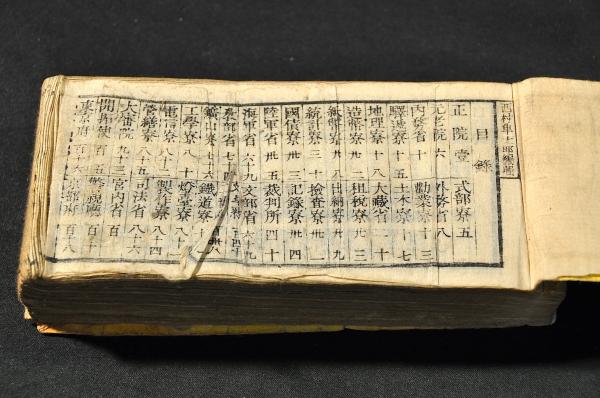 西村隼太郎編輯
目錄
正院 壹 式部寮 五
元老院 六 外務省 八
內務省 十 勸業寮 十三
驛遞寮 十五 土木寮 十七
地理寮 十八 大藏省 二十
造幣寮 租税寮 卅三
紙幣寮 出納寮 卅九
統計寮 卅三 撿查寮
國債寮 卅 記錄寮 卅四
陸軍省 卅五 裁判所 四十
海軍省 六十九 文部省 六十九
教部省 七十四
鑛山寮 七十六 鐵道寮
工學寮 八十 燈臺寮 八十一
電信寮 八十二 製作寮 八十四
營繕寮 八十五 司法省 八十六
大審院 九十三 宮內省 百
開拓使 百五 警視廳 百十
東京府 百十六 京都府 百十八